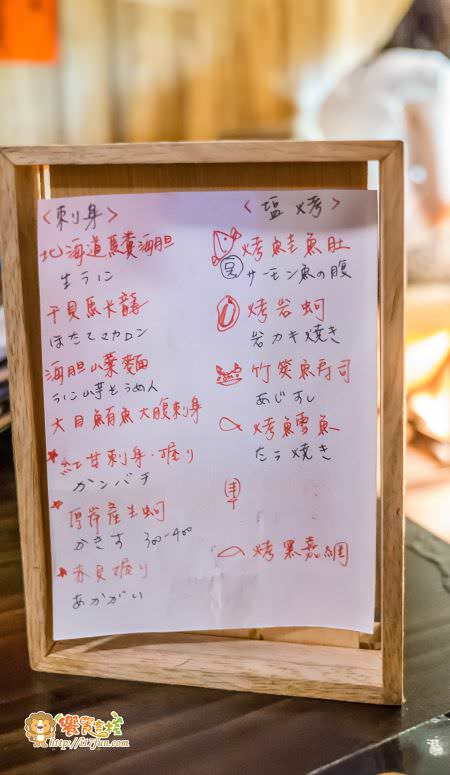 <刺身>
北海道馬糞海胆
生うに
干貝馬卡龍
ほたてマカロン
海胆山葉麵
うに山芋そうめん
大目鮪魚大腹刺身
★紅甘刺身・握り
カンパチ
★厚岸産生蚵
かきす 300-400
★赤貝握り
あかがい
<塩烤>
烤鮭魚肚
サーモン魚の腹
烤岩蚵
岩カキ焼き
竹筴魚寿司
あじすし
烤鱈魚
たラ焼き
烤黑嘉網
饗食遊樂
http://i17fun.com